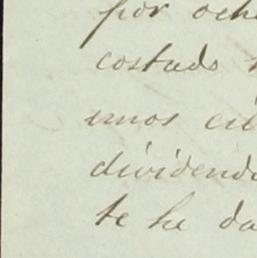 por och
costado
unos cie
dividendo
te he da